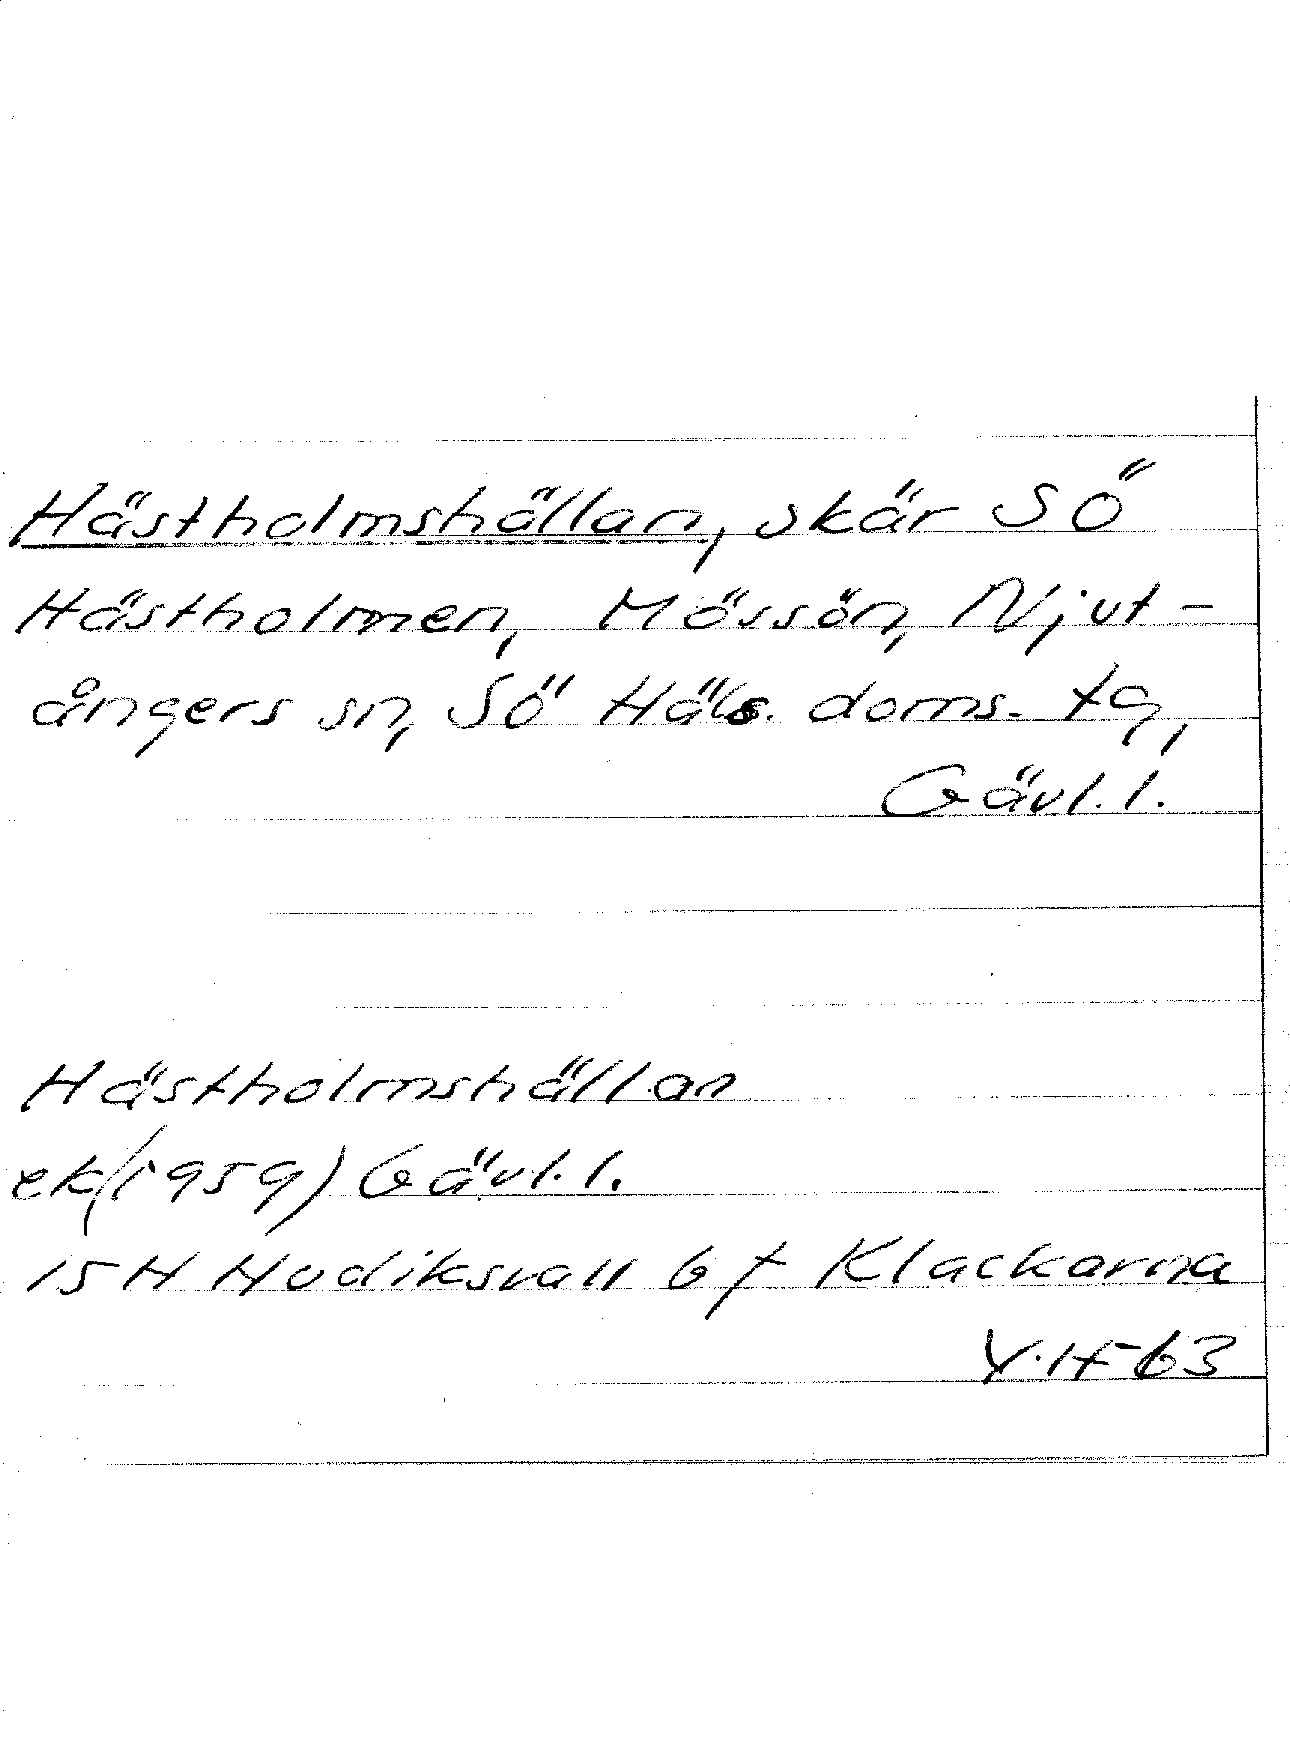 Hästholmshällan, skär SÖ
Hästholmen, Mössön, Njut-
ångers sn, SÖ Häls. doms. tg,
Gävl. l.
Hästholmshällan
ek (1959) Gävl. l.
15H Hudiksvall 6f Klackarna
63